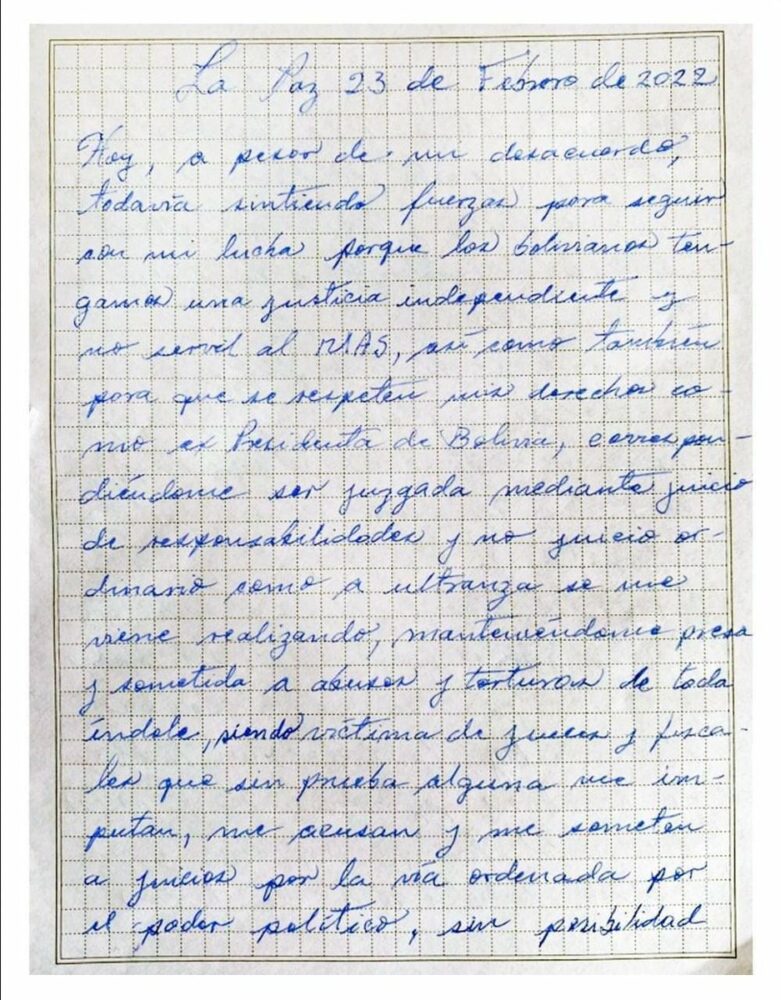 La Paz 23 de Febrero de 2022
Hoy, a pesar de mi desacuerdo,
todavía sintiendo fuerzas para seguir
con mi lucha porque los bolivianos ten-
gamos una justicia independiente y
no servil al MAS, así como también
para que se respeten mis derechos co-
mo ex Presidenta de Bolivia, correspon-
diéndome ser juzgada mediante juicio
de responsabilidades y no juicio or-
dinario como a ultranza se me
viene realizando, manteniéndome presa
y sometida a abusos y torturas de toda
índole, siendo víctima de jueces y fisca-
les que sin prueba alguna me im-
putan, me acusan y me someten
a juicios por la vía ordenada por
el poder político, sin posibilidad